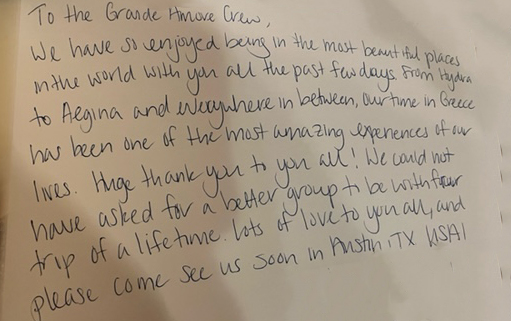 To the Grande Amore Crew,
We have so enjoyed being in the most beautiful places
in the world with you all the past few days. From Hydra
to Aegina and everywhere in between, our time in Greece
has been one of the most amazing experiences of our
lives. Huge thank you to you all! We could not
have asked for a better group to be with for
trip of a lifetime. Lots of love to you all, and
please come see us soon in Austin, TX USA!